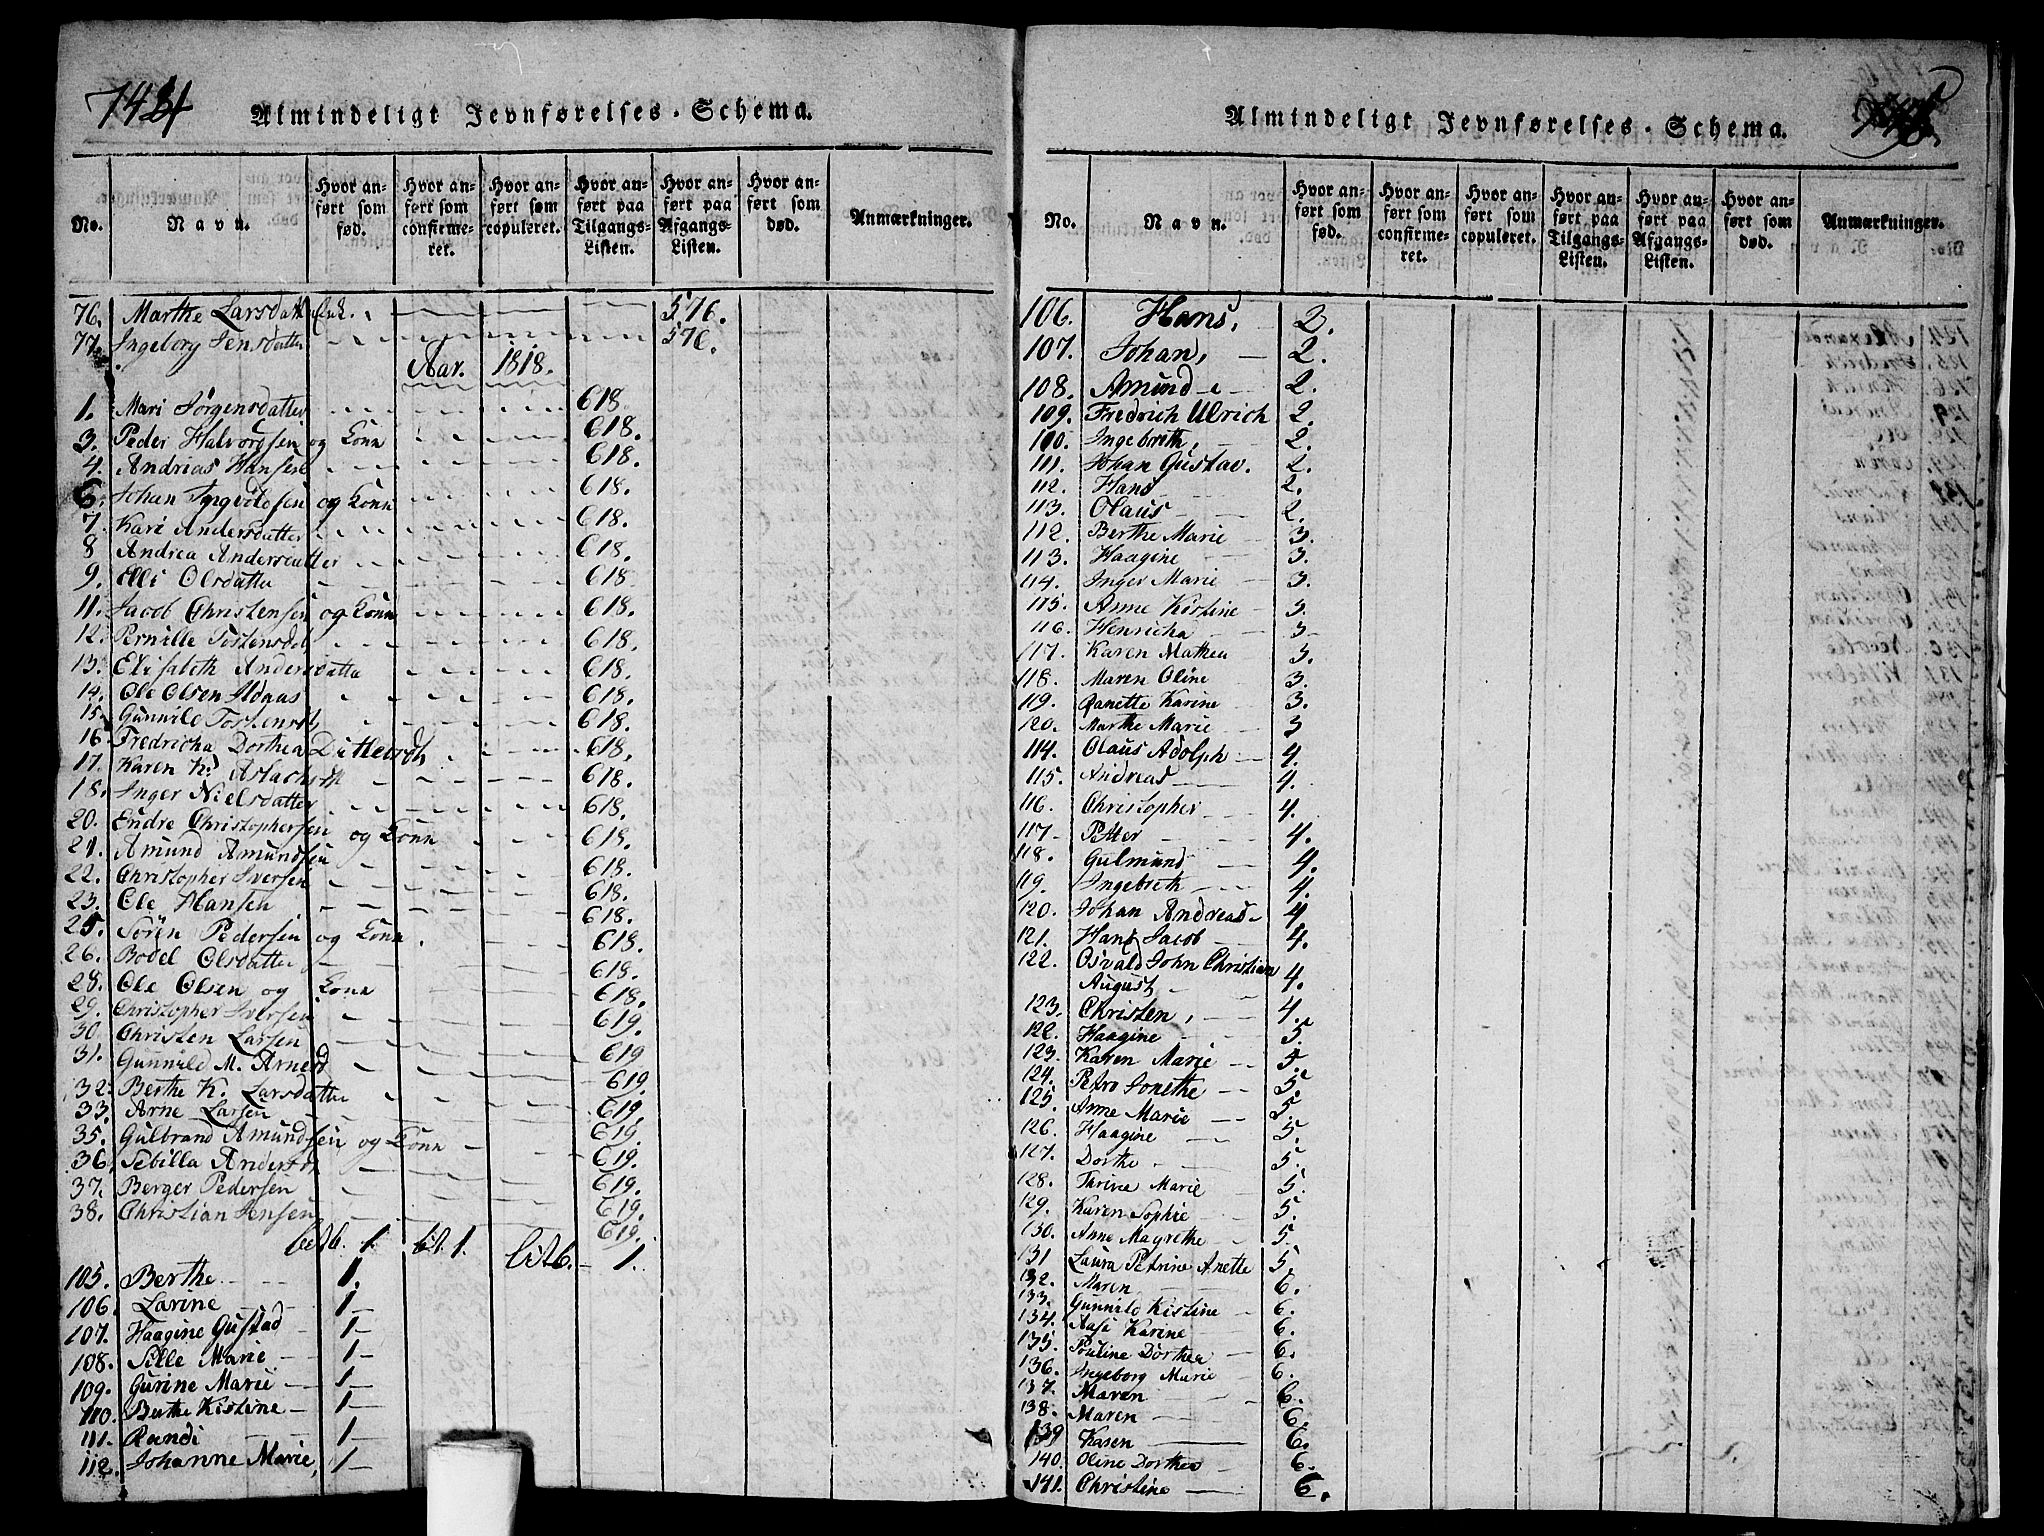 Almindeligt Jevnførelses-Schema.
No. Navn. Hvor anført som fød. Hvor anført som confirmeret. Hvor anført som copuleret. Hvor anført paa Tilgangs-Listen. Hvor anført paa Afgangs-Listen. Hvor anført som død. Anmærkninger.
76. Marthe Larsdatter Enk. 576.
77. Ingeborg Jensdatter 576.
Aar. 1818.
1. Mari Jörgensdatter 618.
3. Peder Halvorsen og Kone 618.
4. Andrias Hansen 618.
6. Johan Ingvoldsen og Kone 618.
7. Kari Andersdatter 618.
8 Andrea Andersdatter 618.
9. Elli Olsdatter 618.
11. Jacob Christensen og Kone 618.
12. Pernille Tostensd 618.
13. Elisabeth Andersdatter 618.
14. Ole Olsen 618.
15. Gunnild Tostensd 618.
16 Fredricha Dorthea 618.
17. Karen K. Aslachsd 618.
18. Inger Nielsdatter 618.
20. Endre Christophersen og Kone 618.
21. Amund Amundsen 618.
22. Christopher Iversen 618.
23. Ole Hansen 618.
25. Sören Pedersen og Kone 618.
26. Bodel Olsdatter 618.
28. Ole Olsen og Kone 618.
29. Christopher Iversen 619.
30. Christen Larsen 619
31. Gunnild M. Arnesd 619.
32. Berthe K. Larsdatter 619.
33. Arne Larsen 619.
35. Gulbrand Amundsen og Kone 619.
36. Sebilla Andersd 619.
37. Berger Pedersen 619.
38. Christian Jensen 619.
1. 1. 1.
105. Berthe 1.
106. Larine 1
107. Haagine Gustad 1
108. Sille Marie 1
109. Gurine Marie 1
110. Berthe Kistine 1
111. Randi 1
112. Johanne Marie, 1
Almindeligt Jevnførelses-Schema.
No. Navn. Hvor anført som fød. Hvor anført som confirmeret. Hvor anført som copuleret. Hvor anført paa Tilgangs-Listen. Hvor anført paa Afgangs-Listen. Hvor anført som død. Anmærkninger.
106. Hans, 2.
107. Johan, 2.
108. Amund 2.
109. Fredrich Ulrich 2.
110. Ingebreth, 2.
111. Johan Gustav. 2.
112. Hans 2.
113. Olaus 2.
112. Berthe Marie 3.
113. Haagine 3.
114. Inger Marie 3.
115. Anne Kistine 3.
116. Henricha 3
117. Karen Mathea 3.
118. Maren Oline 3.
119. Karine 3.
120. Marthe Marie 3
114. Olaus Adolph 4.
115. Andreas 4.
116. Christopher 4.
117 Petter 4.
118. Gulmund 4.
119. Ingebreth 4.
120. Johan Andreas 4
121. Hans Jacob 4.
122. Osvald John Christian August 4.
123. Christen, 4.
122. Haagine 5.
123. Karen Marie 5.
124. Petro Sonethe 5.
125. Anne Marie 5.
126. Haagine 5.
127. Dorthe 5.
128. Thrine Marie 5.
129. Karen Sophie 5.
130. Anne Magrethe 5.
131 Laura Petrine Anette 5.
132. Maren 6.
133. Gunnild Kistine 6.
134. Aase Karine 6.
135. Pouline Dorthea 6.
136. Ingeborg Marie 6.
137. Maren 6.
138. Maren 6.
139 Karen 6.
140. Oline Dorthea 6.
141. Christine 6.